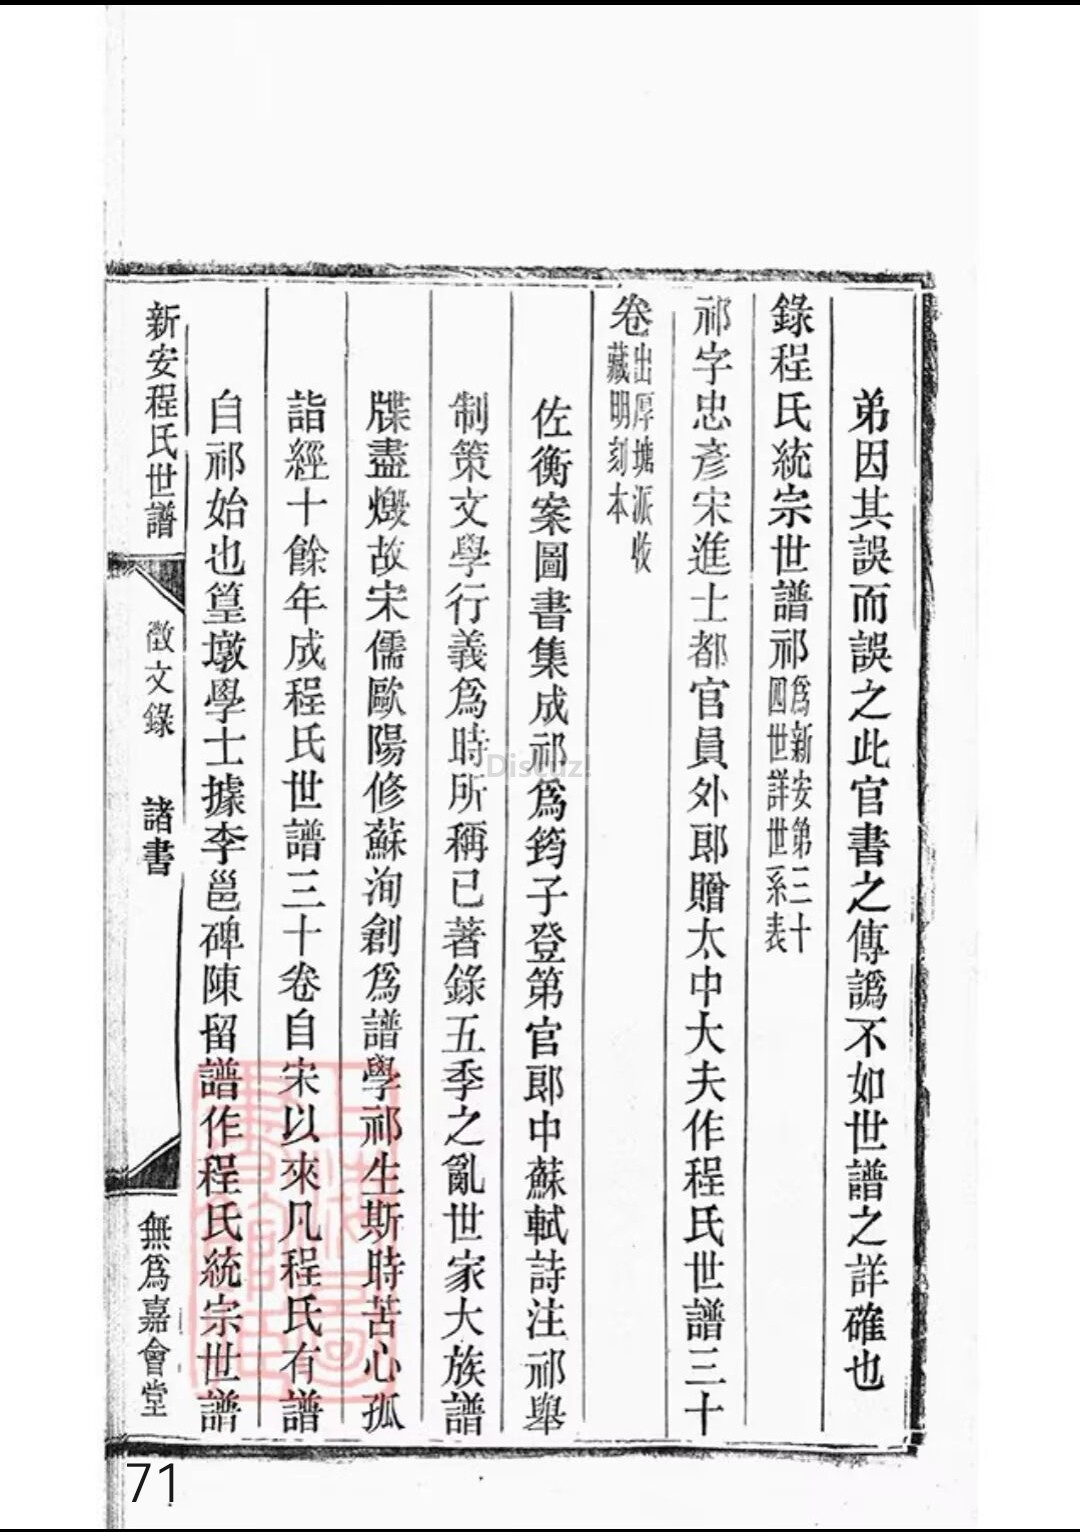 弟因其誤而誤之此官書之傳譌不如世譜之詳確也
錄程氏統宗世譜祁爲新安第三十四世詳世系表
祁字忠彥宋進士都官員外郎贈太中大夫作程氏世譜三十
卷出厚塘派收藏明刻本
佐衡案圖書集成祁爲筠子登第官郎中蘇軾詩注祁舉
制策文學行義爲時所稱已著錄五季之亂世家大族譜
牒盡燬故宋儒歐陽修蘇洵創爲譜學祁生斯時苦心孤
詣經十餘年成程氏世譜三十卷自宋以來凡程氏有譜
自祁始也篁墩學士據李邕碑陳留譜作程氏統宗世譜
新安程氏世譜
徵文錄
諸書
無爲嘉會堂
上海圖書館藏
Discuz!
71